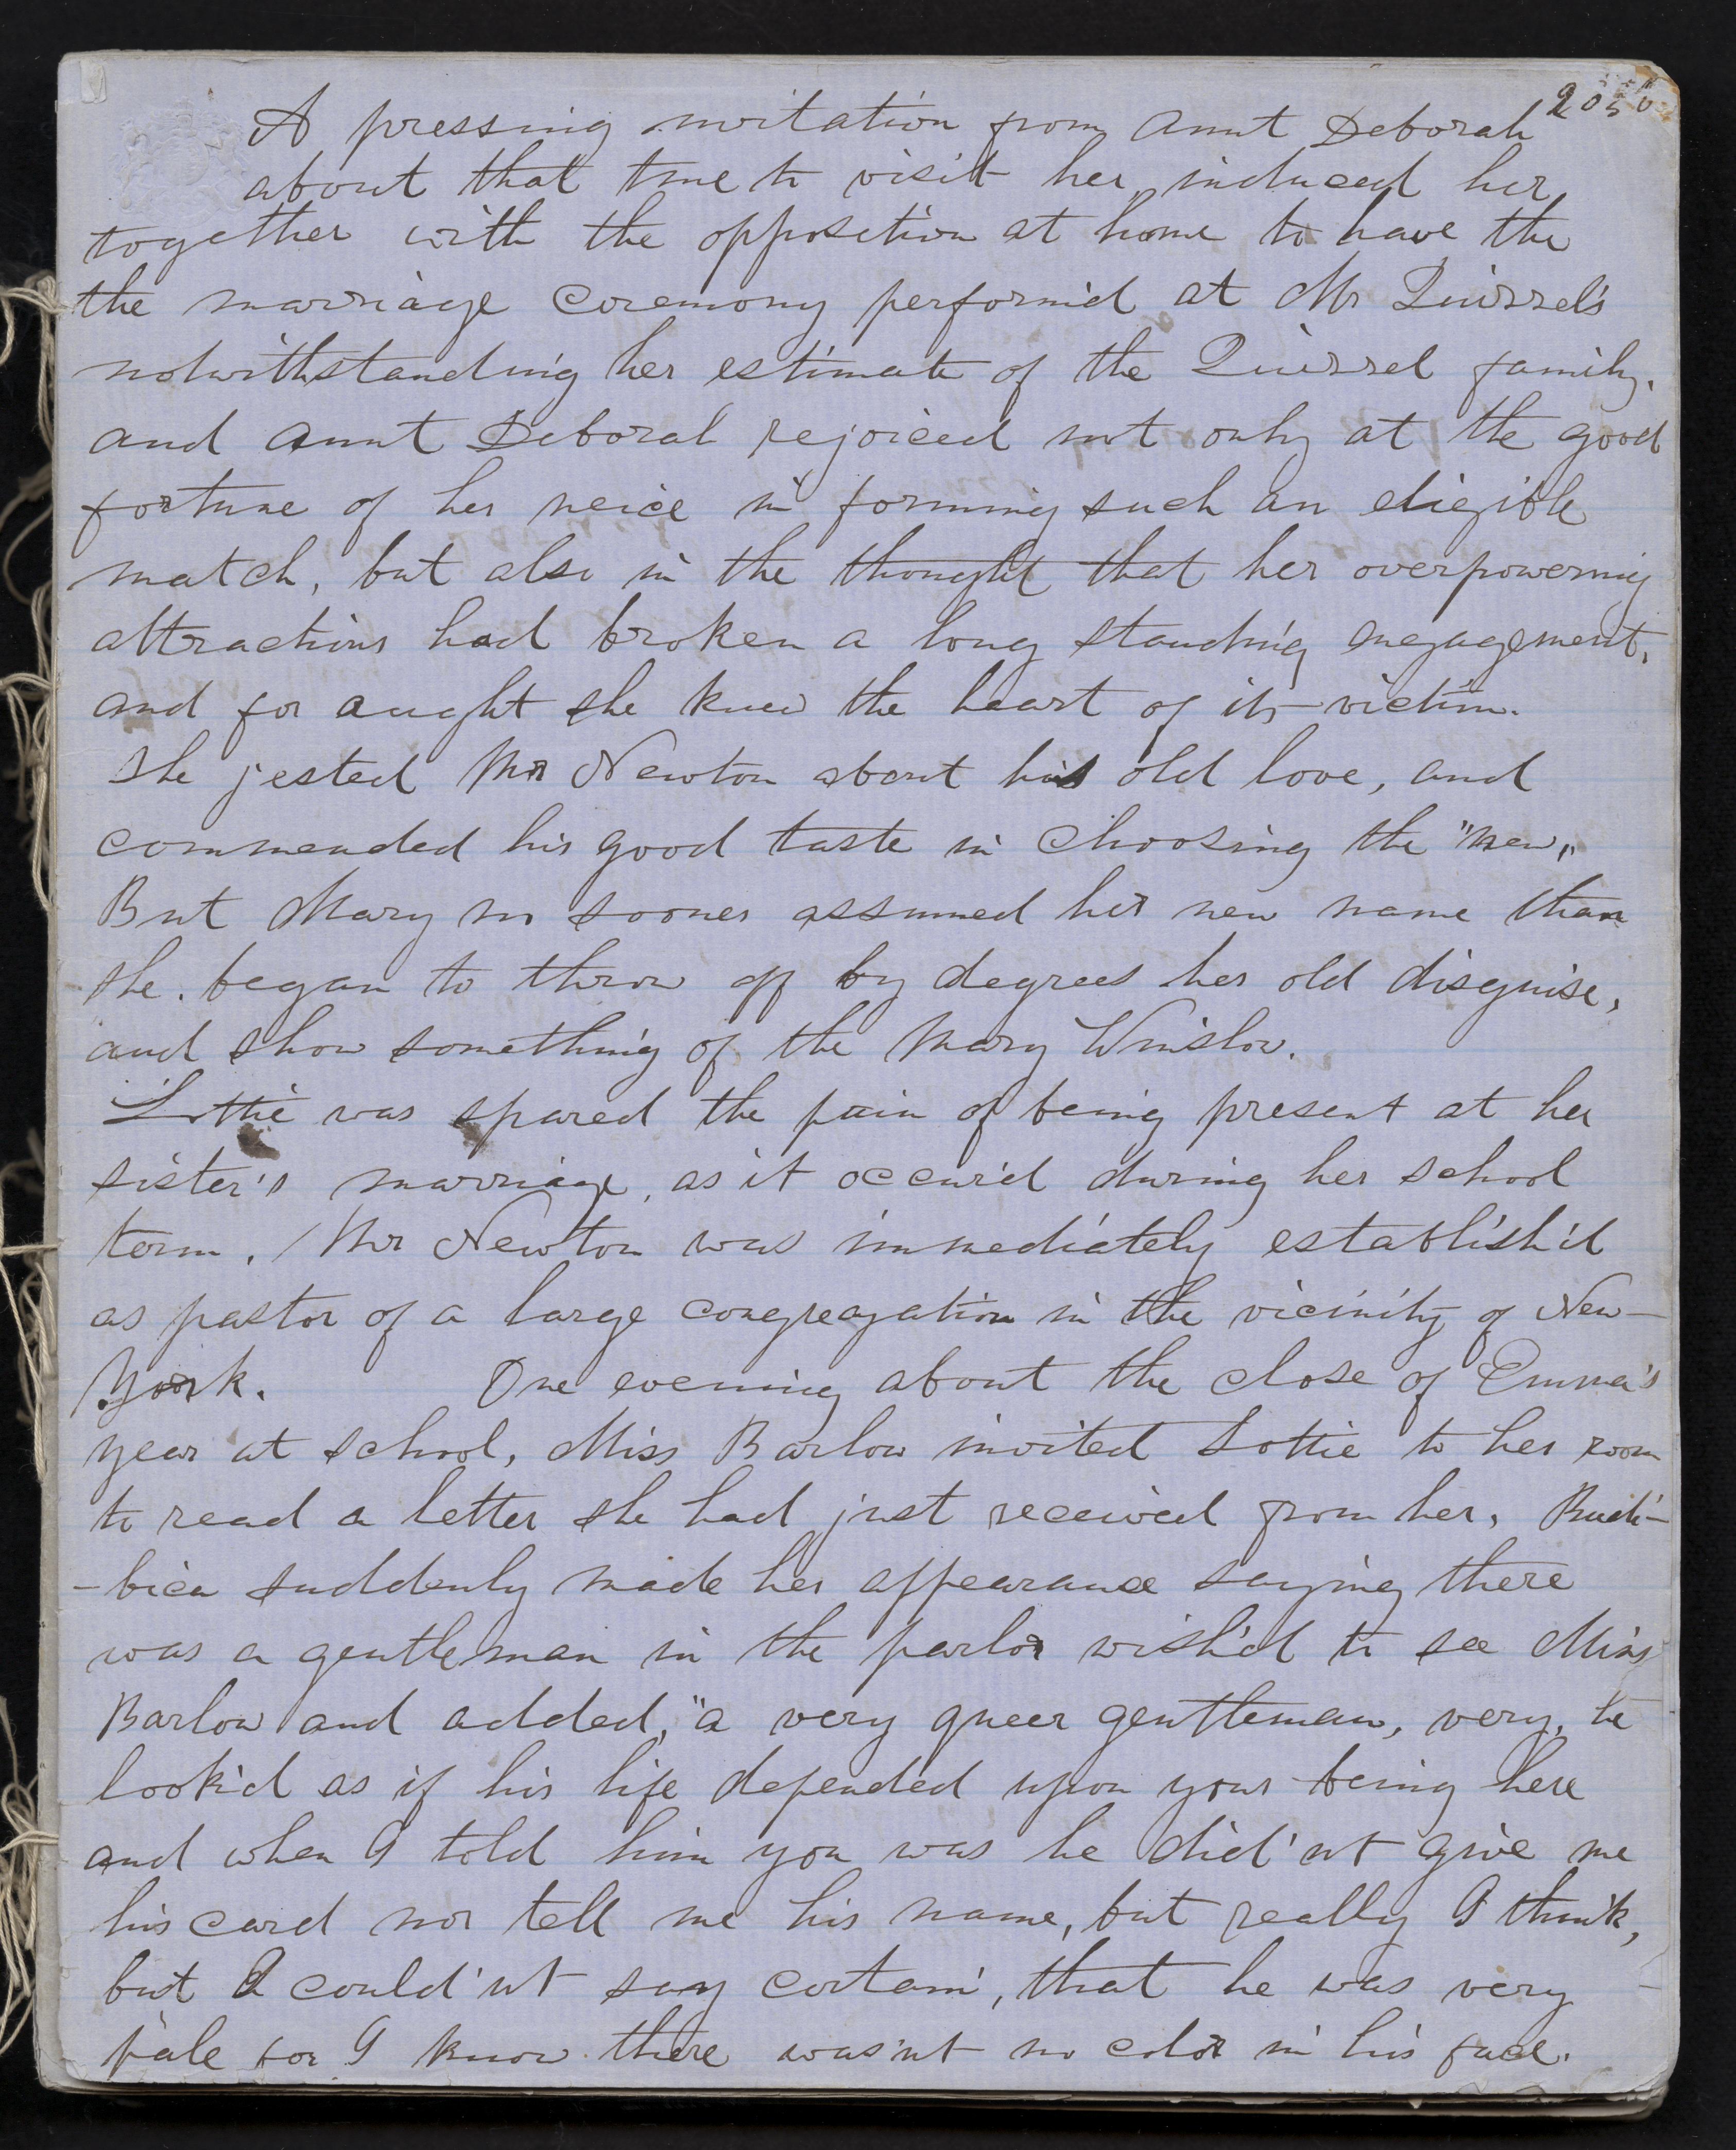 205
A pressing invitation from Aunt Deborah
about that time to visit her, induced her,
together with the opposition at home to have the
the marriage ceremony perform'd at Mr Quirrel's
notwithstanding her estimate of the Quirrel family.
and Aunt Deborah rejoiced not only at the good
fortune of her neice in forming such an eligible
match, but also in the thought that her overpowering
attractions had broken a long standing engagement,
and for aught she knew the heart of its victim.
She jested Mr Newton about his old love, and
commended his good taste in choosing the "new"
But Mary no sooner assumed her new name than
she began to throw off by degrees her old disguise,
and show something of the Mary Winslow.
Lottie was spared the pain of being present at her
sister's marriage, as it occur'd during her school
term. / Mr Newton was immediately establish'd
as pastor of a large congregation in the vicinity of New-
York. One evening about the close of Emma's
year at school, Miss Barlow invited Lottie to her room
to read a letter she had just received from her,
-bica suddenly made her appearance saying there
was a gentleman in the parlor wish'd to see Miss
Barlow and added, "a very queer gentleman, very, he
look'd as if his life depended upon your being here
and when I told him you was he did'nt give me
his card nor tell me his name, but really I think,
but I could'nt say certain, that he was very
pale for I know there was'nt no color in his face.